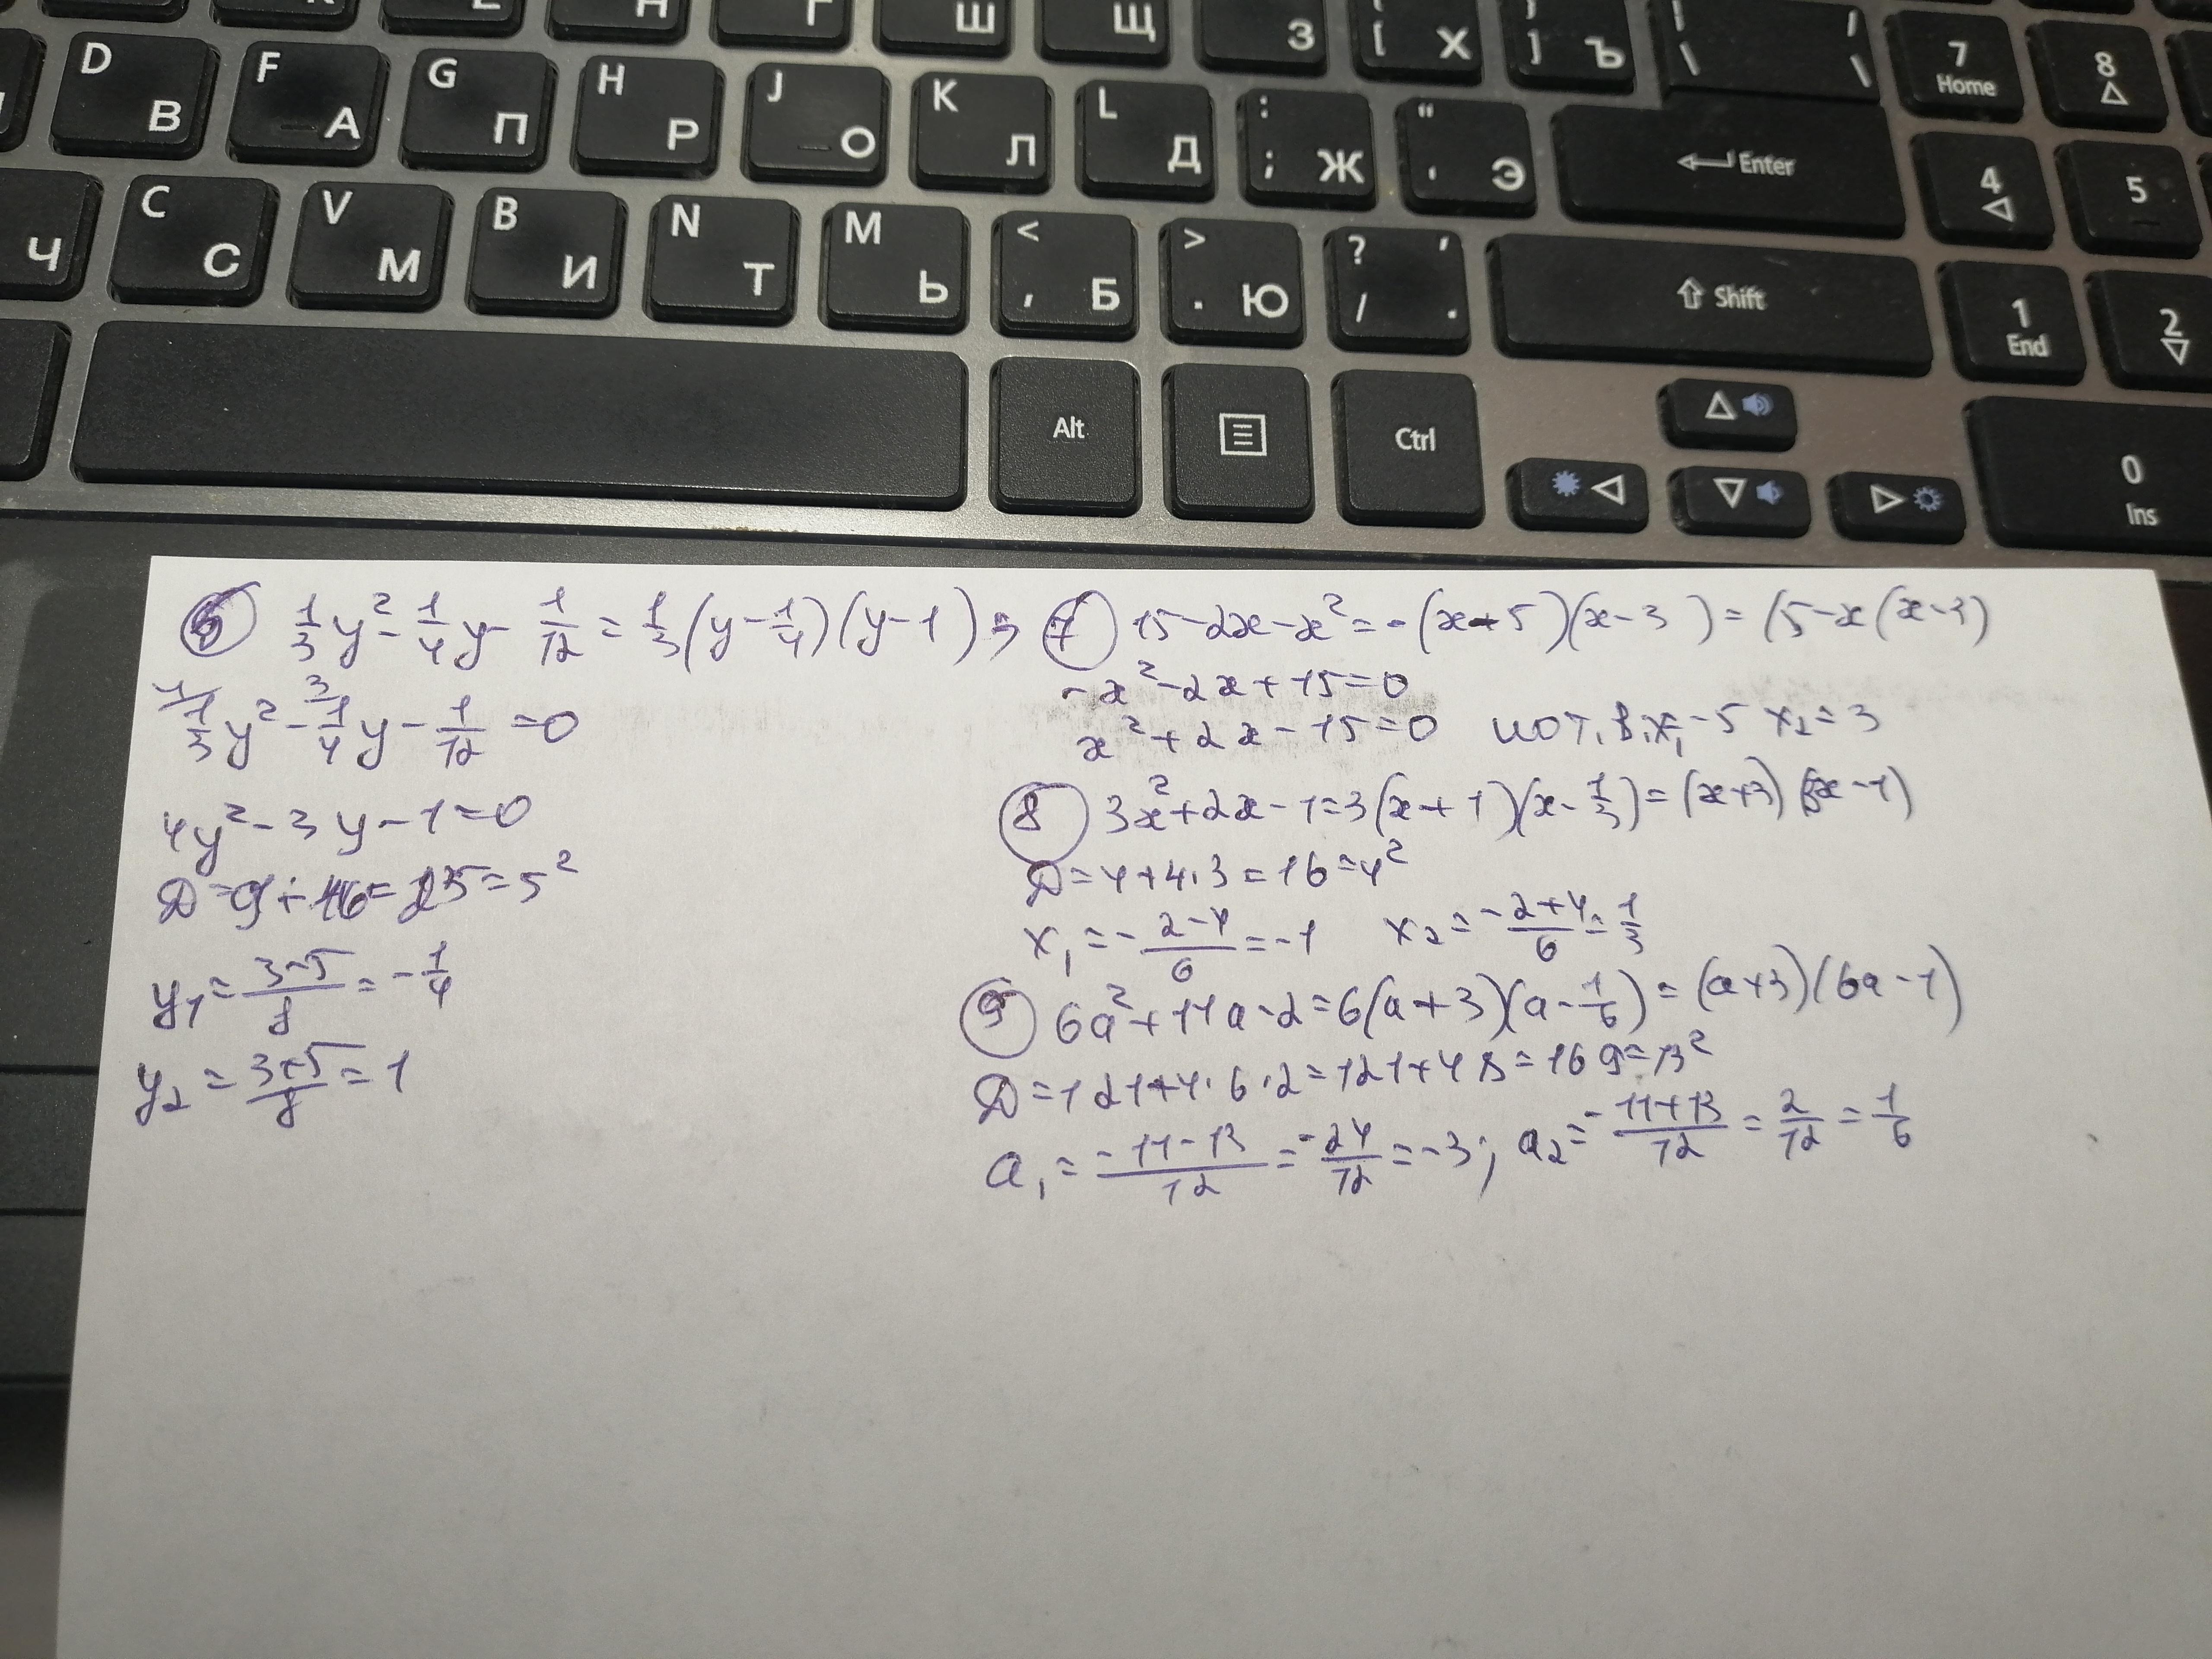 Ш Щ З [ Х ] Ъ \ / \ 7 Home 8
D В F А G П H Р J О K Л L Д : ; Ж " ' Э Enter 4 5
Ч C С V М B И N Т M Ь < , Б > . Ю ? / , . Shift 1 End 2
Alt Ctrl 0 Ins
⑥ 1/3 y² - 1/4 y - 1/12 = 1/3 (y - 1/4)(y - 1) =
1/3 y² - 1/4 y - 1/12 = 0
4y² - 3y - 1 = 0
D = 9 + 16 = 25 = 5²
y₁ = (3-5)/8 = -1/4
y₂ = (3+5)/8 = 1
⑦ 15 - 2x - x² = -(x+5)(x-3) = (5-x(x-3)
-x² - 2x + 15 = 0
x² + 2x - 15 = 0 по т. В. x₁ = -5 x₂ = 3
⑧ 3x² + 2x - 1 = 3(x+1)(x - 1/3) = (x+3)(3x-1)
D = 4 + 4·3 = 16 = 4²
x₁ = -(2-4)/6 = -1 x₂ = (-2+4)/6 = 1/3
⑨ 6a² + 17a - 2 = 6(a+3)(a - 1/6) = (a+3)(6a-1)
D = 121 + 4·6·2 = 121 + 48 = 169 = 13²
a₁ = (-11-13)/12 = -24/12 = -3; a₂ = (-11+13)/12 = 2/12 = 1/6